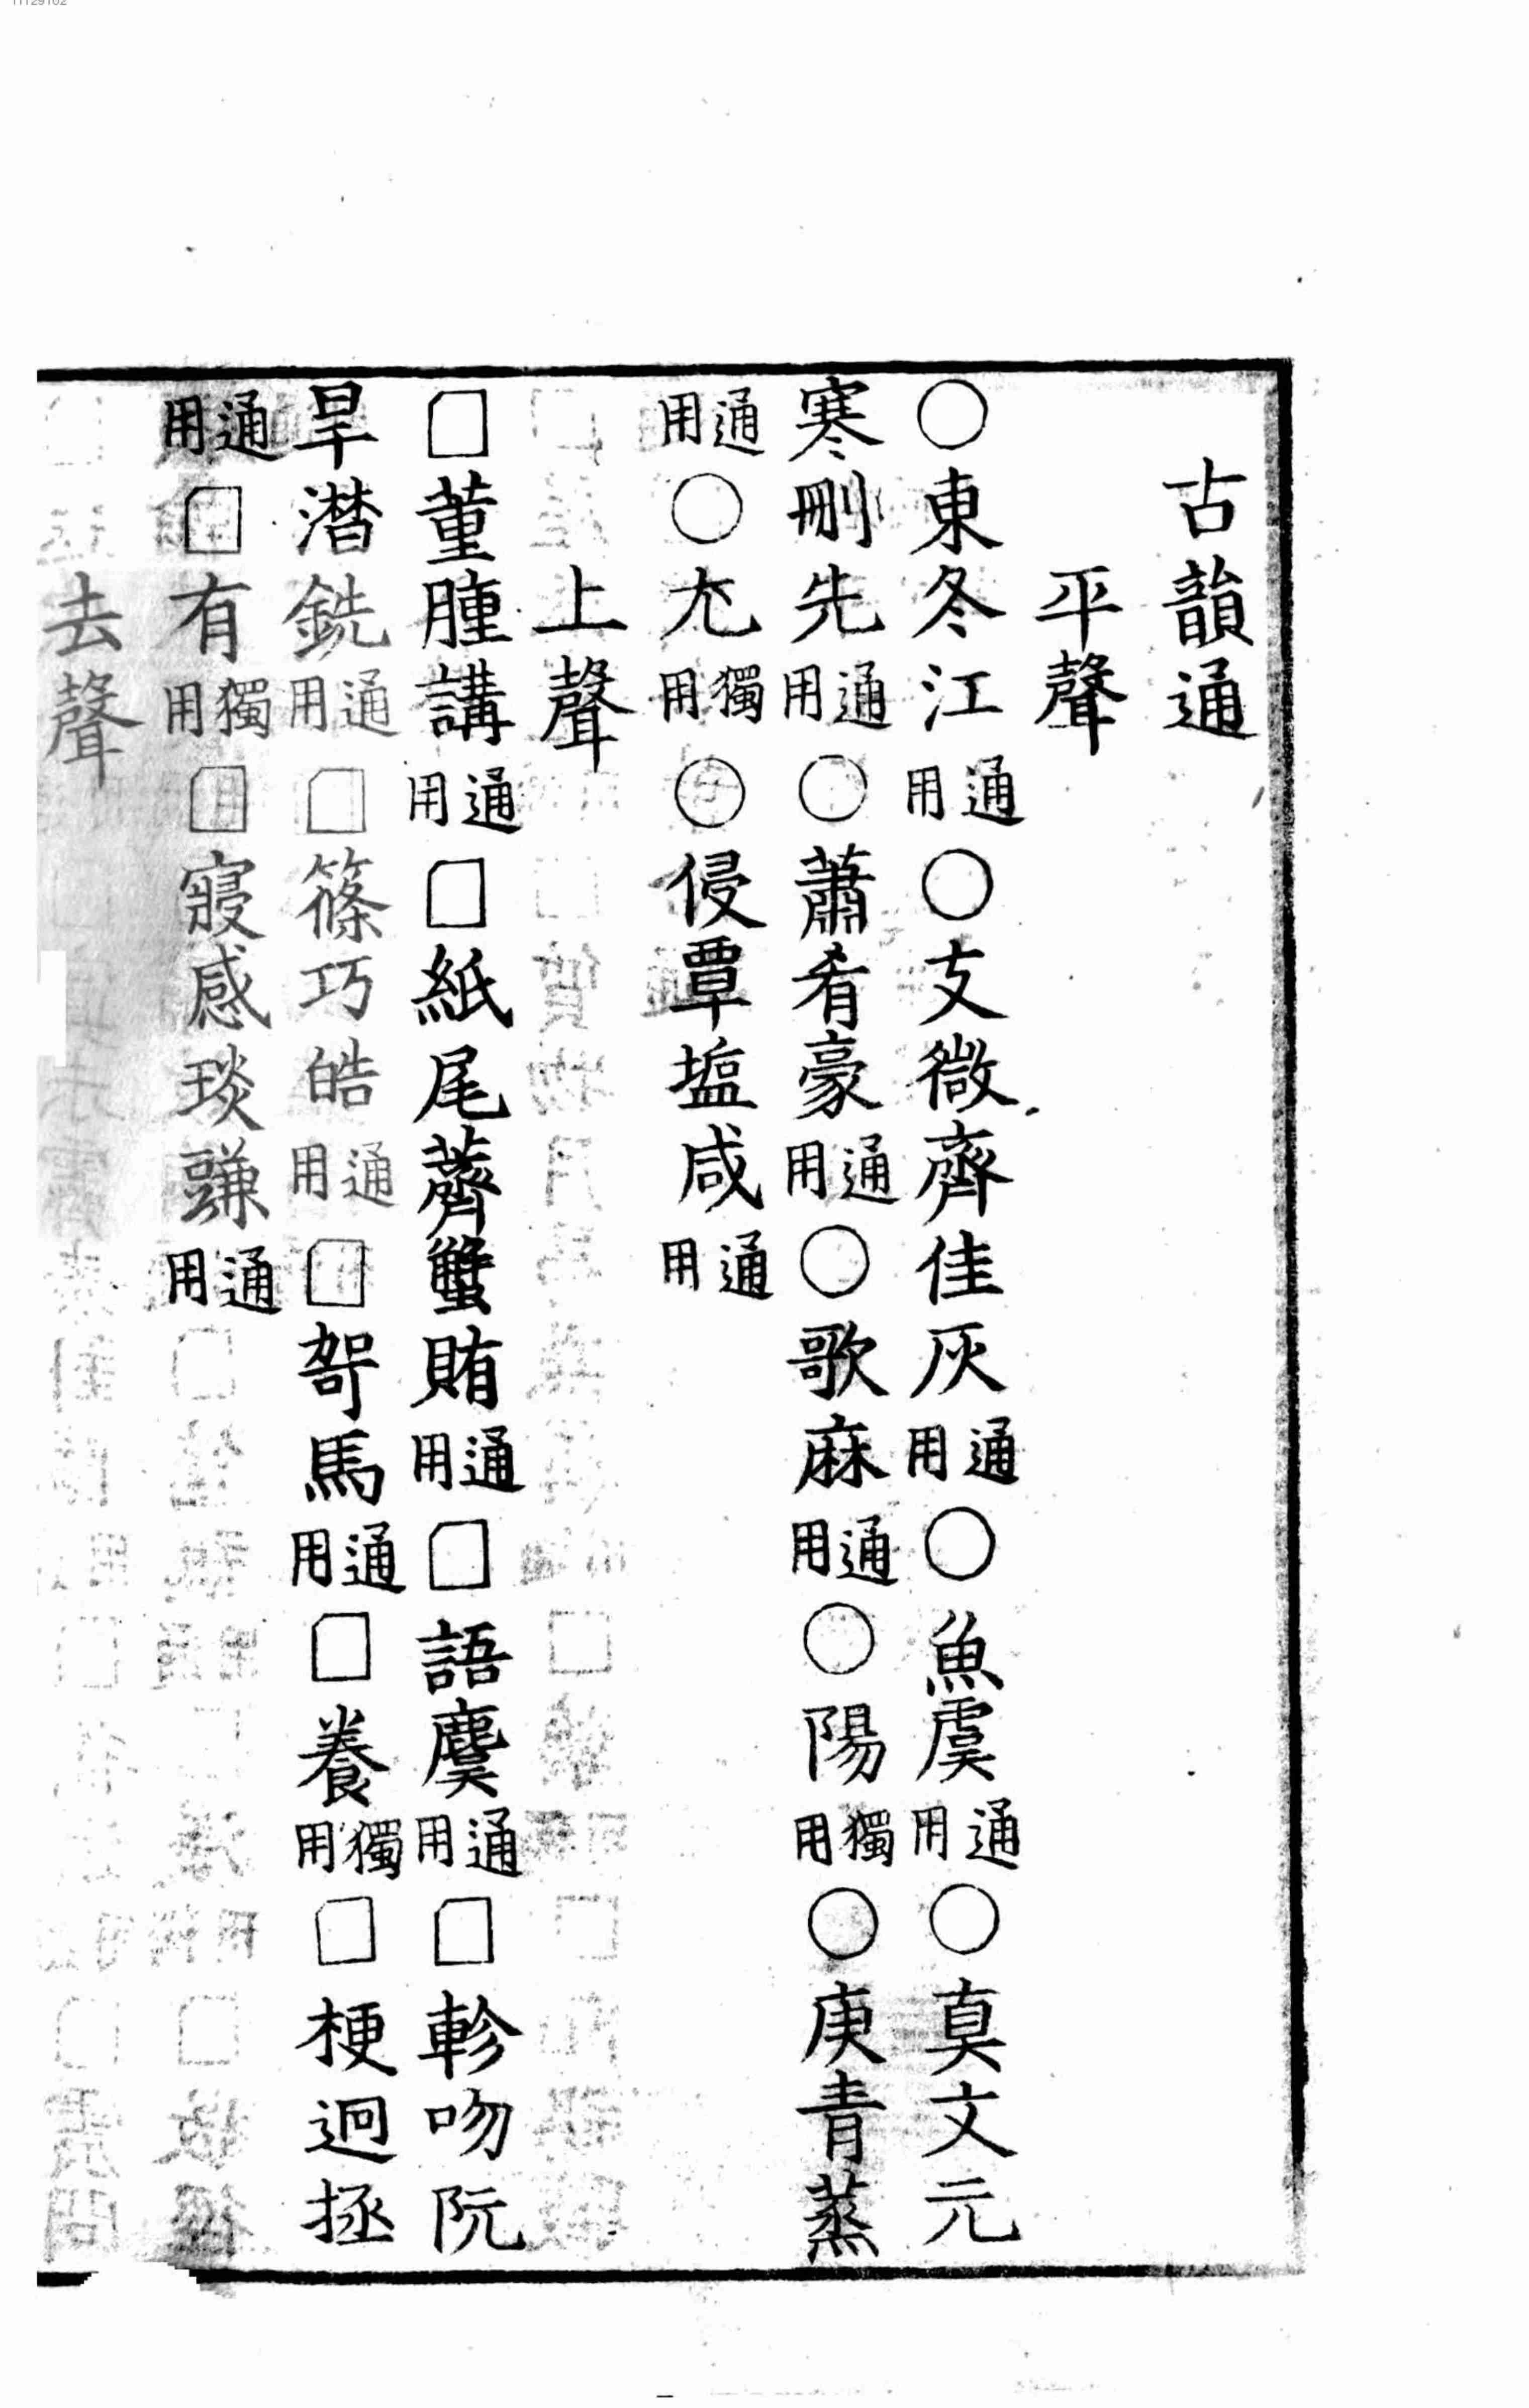 古韻通
平聲
○東冬江通用○支微齊佳灰通用○魚虞通用○真文元
寒刪先通用○蕭肴豪通用○歌麻通用○陽獨用○庚青蒸
通用○尤獨用○侵覃塩咸通用
上聲
□董腫講通用□紙尾薺蟹賄通用□語麌通用□軫吻阮
旱潸銑通用□篠巧皓通用□哿馬通用□養獨用□梗迥拯
通用□有獨用□寢感琰豏通用
去聲